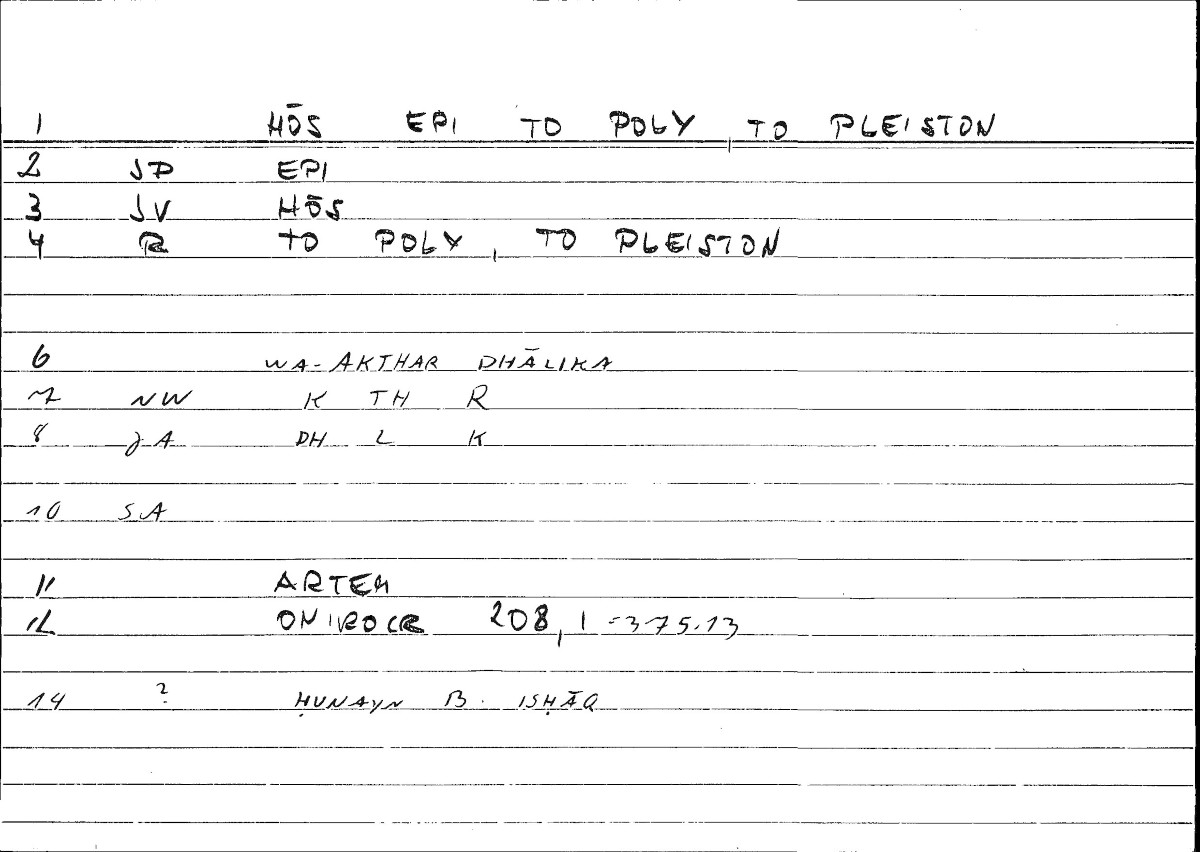 1 HŌS EPI TO POLY, TO PLEISTON
2 JP EPI
3 JV HŌS
4 R TO POLY, TO PLEISTON
6 WA-AKTHAR DHĀLIKA
7 NW K TH R
8 JA DH L K
10 SA
11 ARTEM
12 ONIROCR 208,1-375.13
14 ? ḤUNAYN B. ISḤĀQ